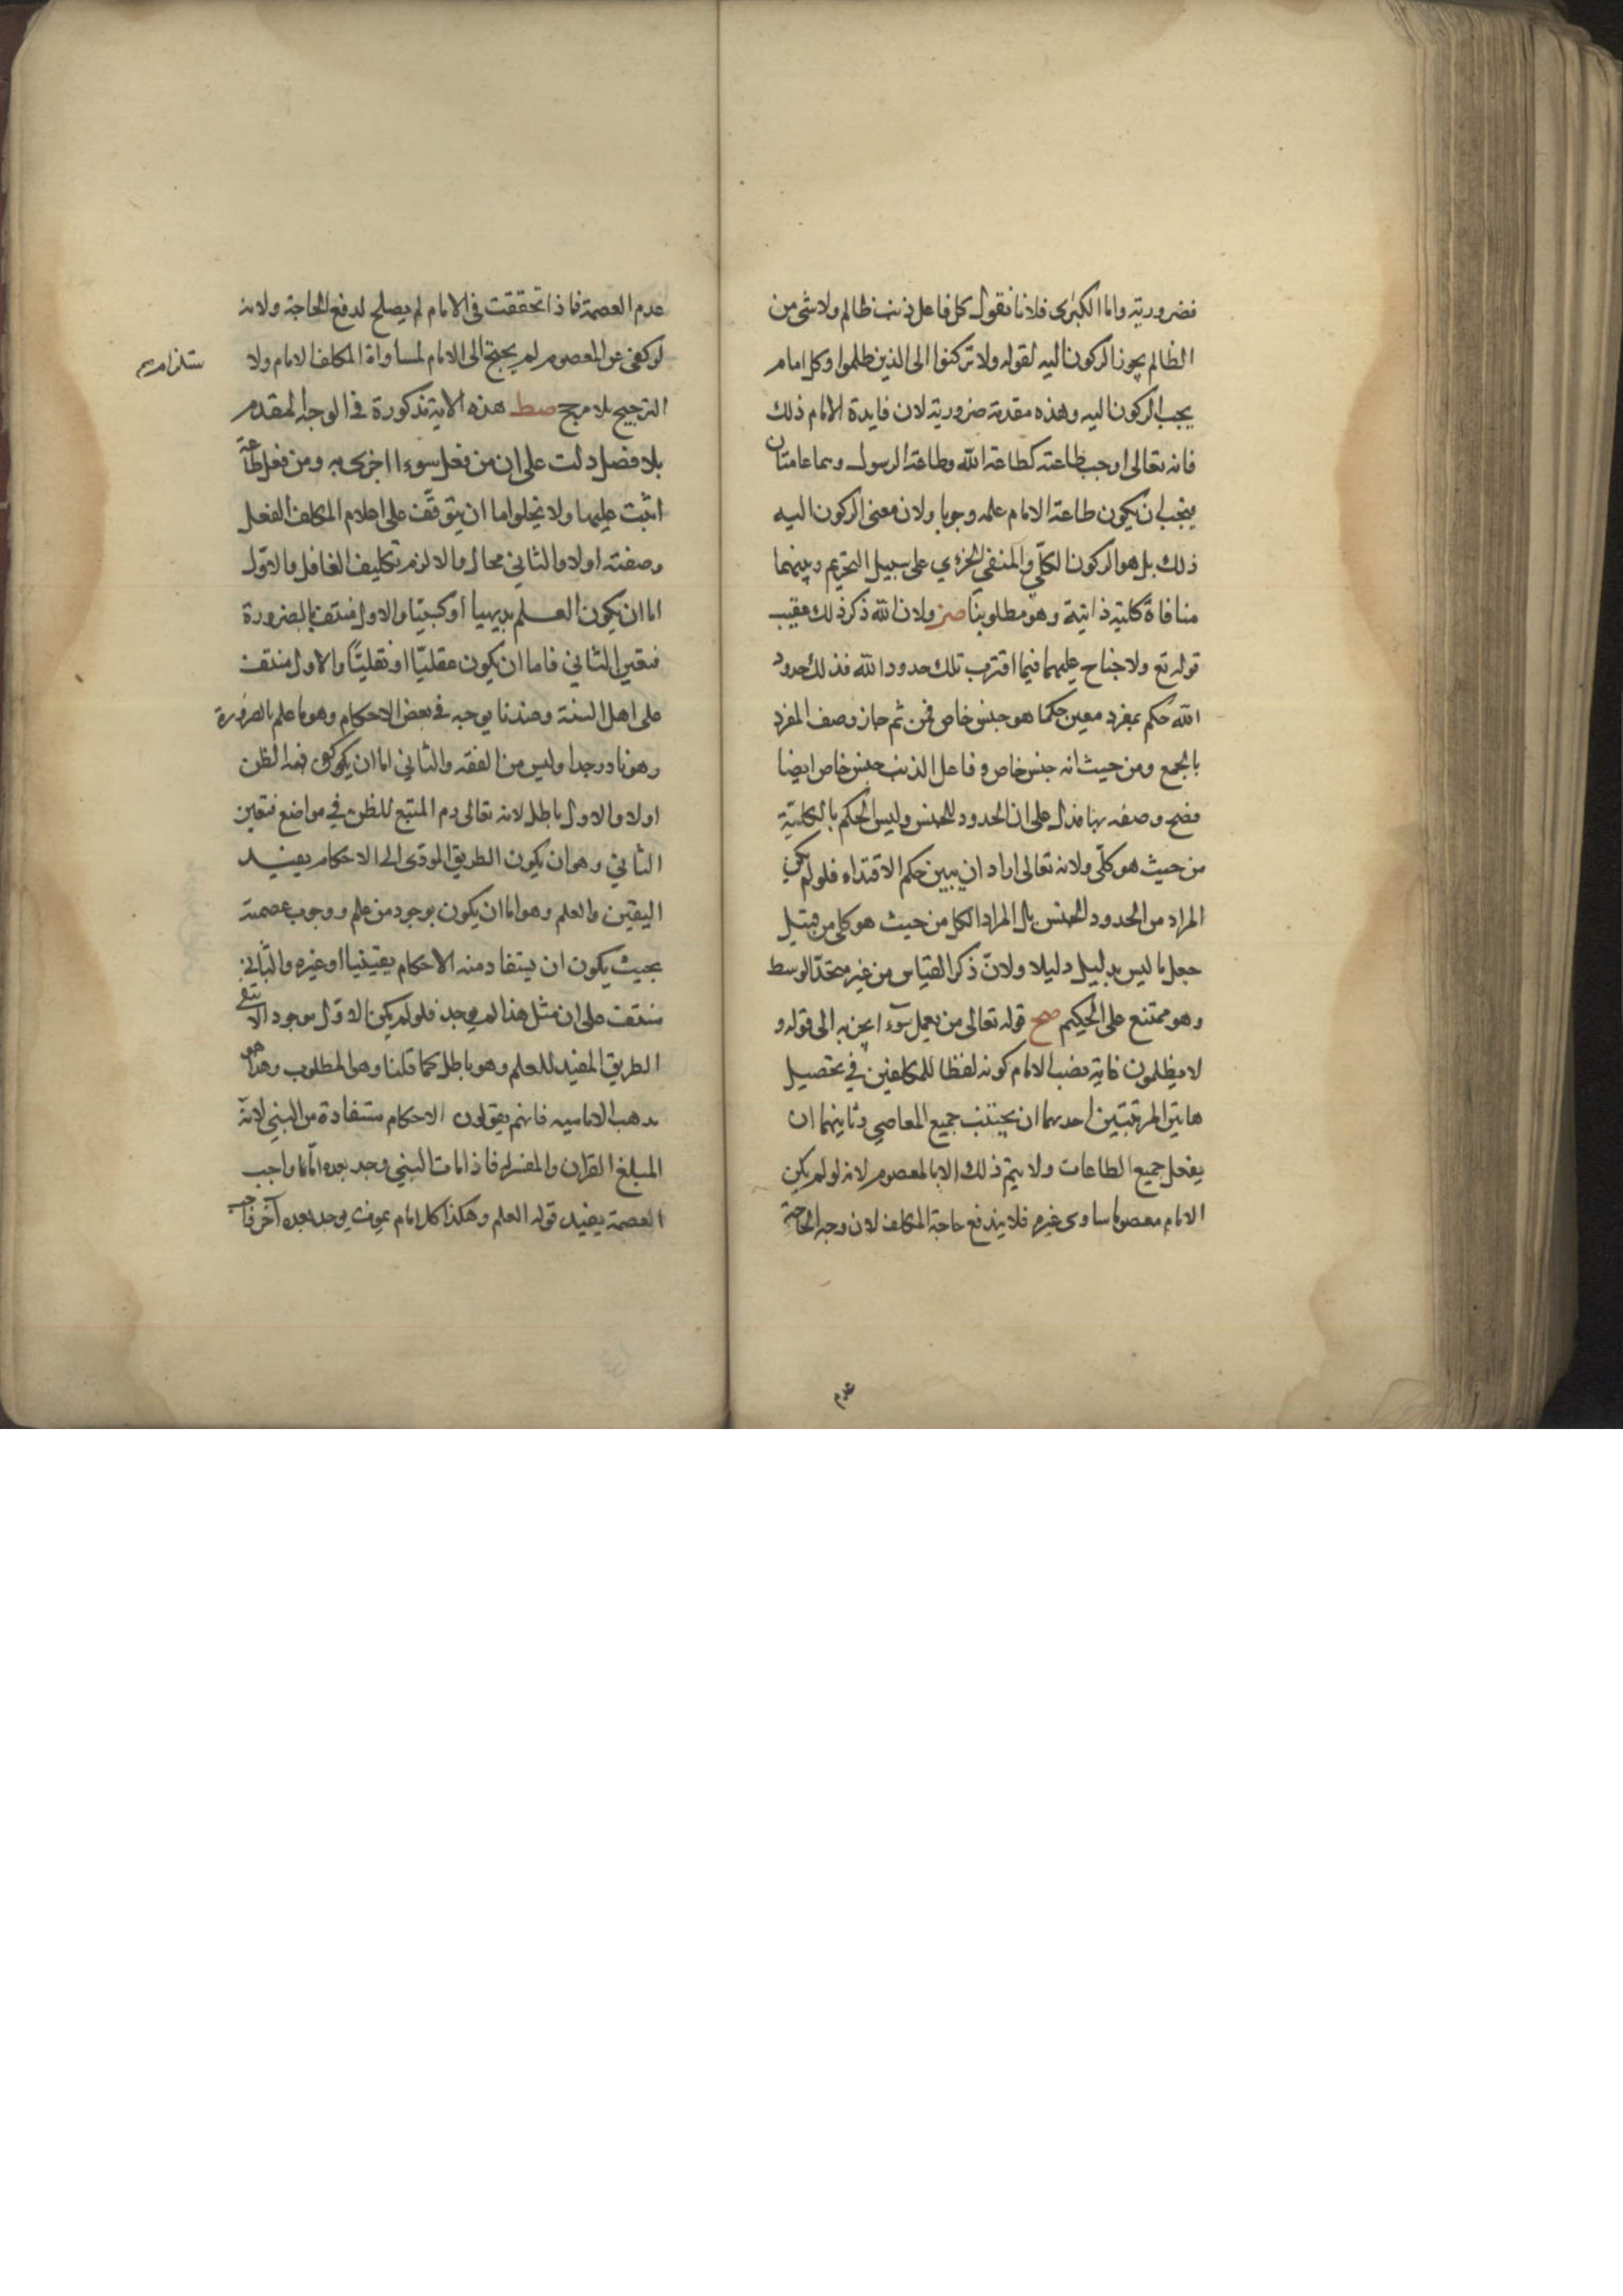 فضرورية واما الكبرى فلانا نقول كل فاعل ذنب ظالم ولا شئ من
الظالم يجوز الركون اليه لقوله ولا تركنوا الى الذين ظلموا وكل امام
يجب الركون اليه وهذه مقدمة ضرورية لان فايدة الامام ذلك
فانه تعالى اوجب طاعته كطاعة الله وطاعة الرسول وهما عامتان
فيجب ان يكون طاعة الامام علمه وجوبا ولان معنى الركون اليه
ذلك بل هو الركون الكلي والمنفي الجزءي على سبيل التحريم وبينهما
منافاة كلية ذاتية وهو مطلوبنا صز ولان الله ذكر ذلك عقيب
قوله تع ولا جناح عليهما فيما افتدت تلك حدود الله فذلك حدود
الله حكم بمفرد معين حكما هو جنس خاص فمن ثم جاز وصف المفرد
بالجمع ومن حيث انه جنس خاص وفاعل الذنب جنس خاص ايضا
فصح وصفه بها فدل على ان الحدود للجنس وليس الحكم بالكلية
من حيث هو كلّي ولانه تعالى اراد ان يبين حكم الاقتداء فلو لم يكن
المراد من الحدود الجنس بل المراد الكل من حيث هو كلي من قبيل
جعل ما ليس بدليل دليلا ولانّ ذكر القياس من غير متحد الوسط
وهو ممتنع على الحكيم صح قوله تعالى من يعمل سوءا يجز به الى قوله و
لا يظلمون غاية نصب الامام كونه لطفا للمكلفين في تحصيل
هاتين المرتبتين احديهما ان يجتنب جميع المعاصي وثانيهما ان
يفعل جميع الطاعات ولا يتم ذلك الا بالمعصوم لانه لو لم يكن
الامام معصوما ساوى غيره فلا يندفع حاجة المكلف لان وجه الحاجة
عدم
عدم العصمة فاذا تحققت في الامام لم يصلح لدفع الحاجة ولانه
لو كفى غير المعصوم لم يحتج الى الامام لمساواة المكلف الامام ولا
الترجيح بلا مرجح صط هذه الاية مذكورة في الوجه المقدم
بلا فصل دلت على ان من فعل سوءا اجزى به ومن فعل طاعة
اثبت عليها ولا يخلوا اما ان يتوقّف على اعلام المكلف الفعل
وصفته اولا والثاني محال والا لزم تكليف الغافل والاول
اما ان يكون العلم بديهيا او كسبيّا والاول منتف بالضرورة
فتعين الثاني فاما ان يكون عقليّا او نقليّا والاول منتف
على اهل السنة وعندنا يوجد في بعض الاحكام وهو ما علم بالضرورة
وهو نادر جدا وليس من الفقه والثاني اما ان يكون يكفي فيه الظن
اولا والاول باطل لانه تعالى ذم المتبع للظن في مواضع فتعين
الثاني وهو ان يكون الطريق المودى الى الاحكام يفيد
اليقين والعلم وهو اما ان يكون بوجود من علم ووجوب عصمته
بحيث يكون ان يستفاد منه الاحكام يقينيا او غيره والثاني
منتف على ان مثل هذا لم يوجد فلو لم يكن الاول موجود الانتفى
الطريق المفيد للعلم وهو باطل كما قلنا وهو المطلوب وهذا هو
مذهب الامامية فانهم يقولون الاحكام مستفادة من النبي لانه
المبلغ القران والمفسر له فاذا مات النبي وجد بعده امّاما واجب
العصمة يفيد قوله العلم وهكذا كل امام يموت يوجد بعده آخر